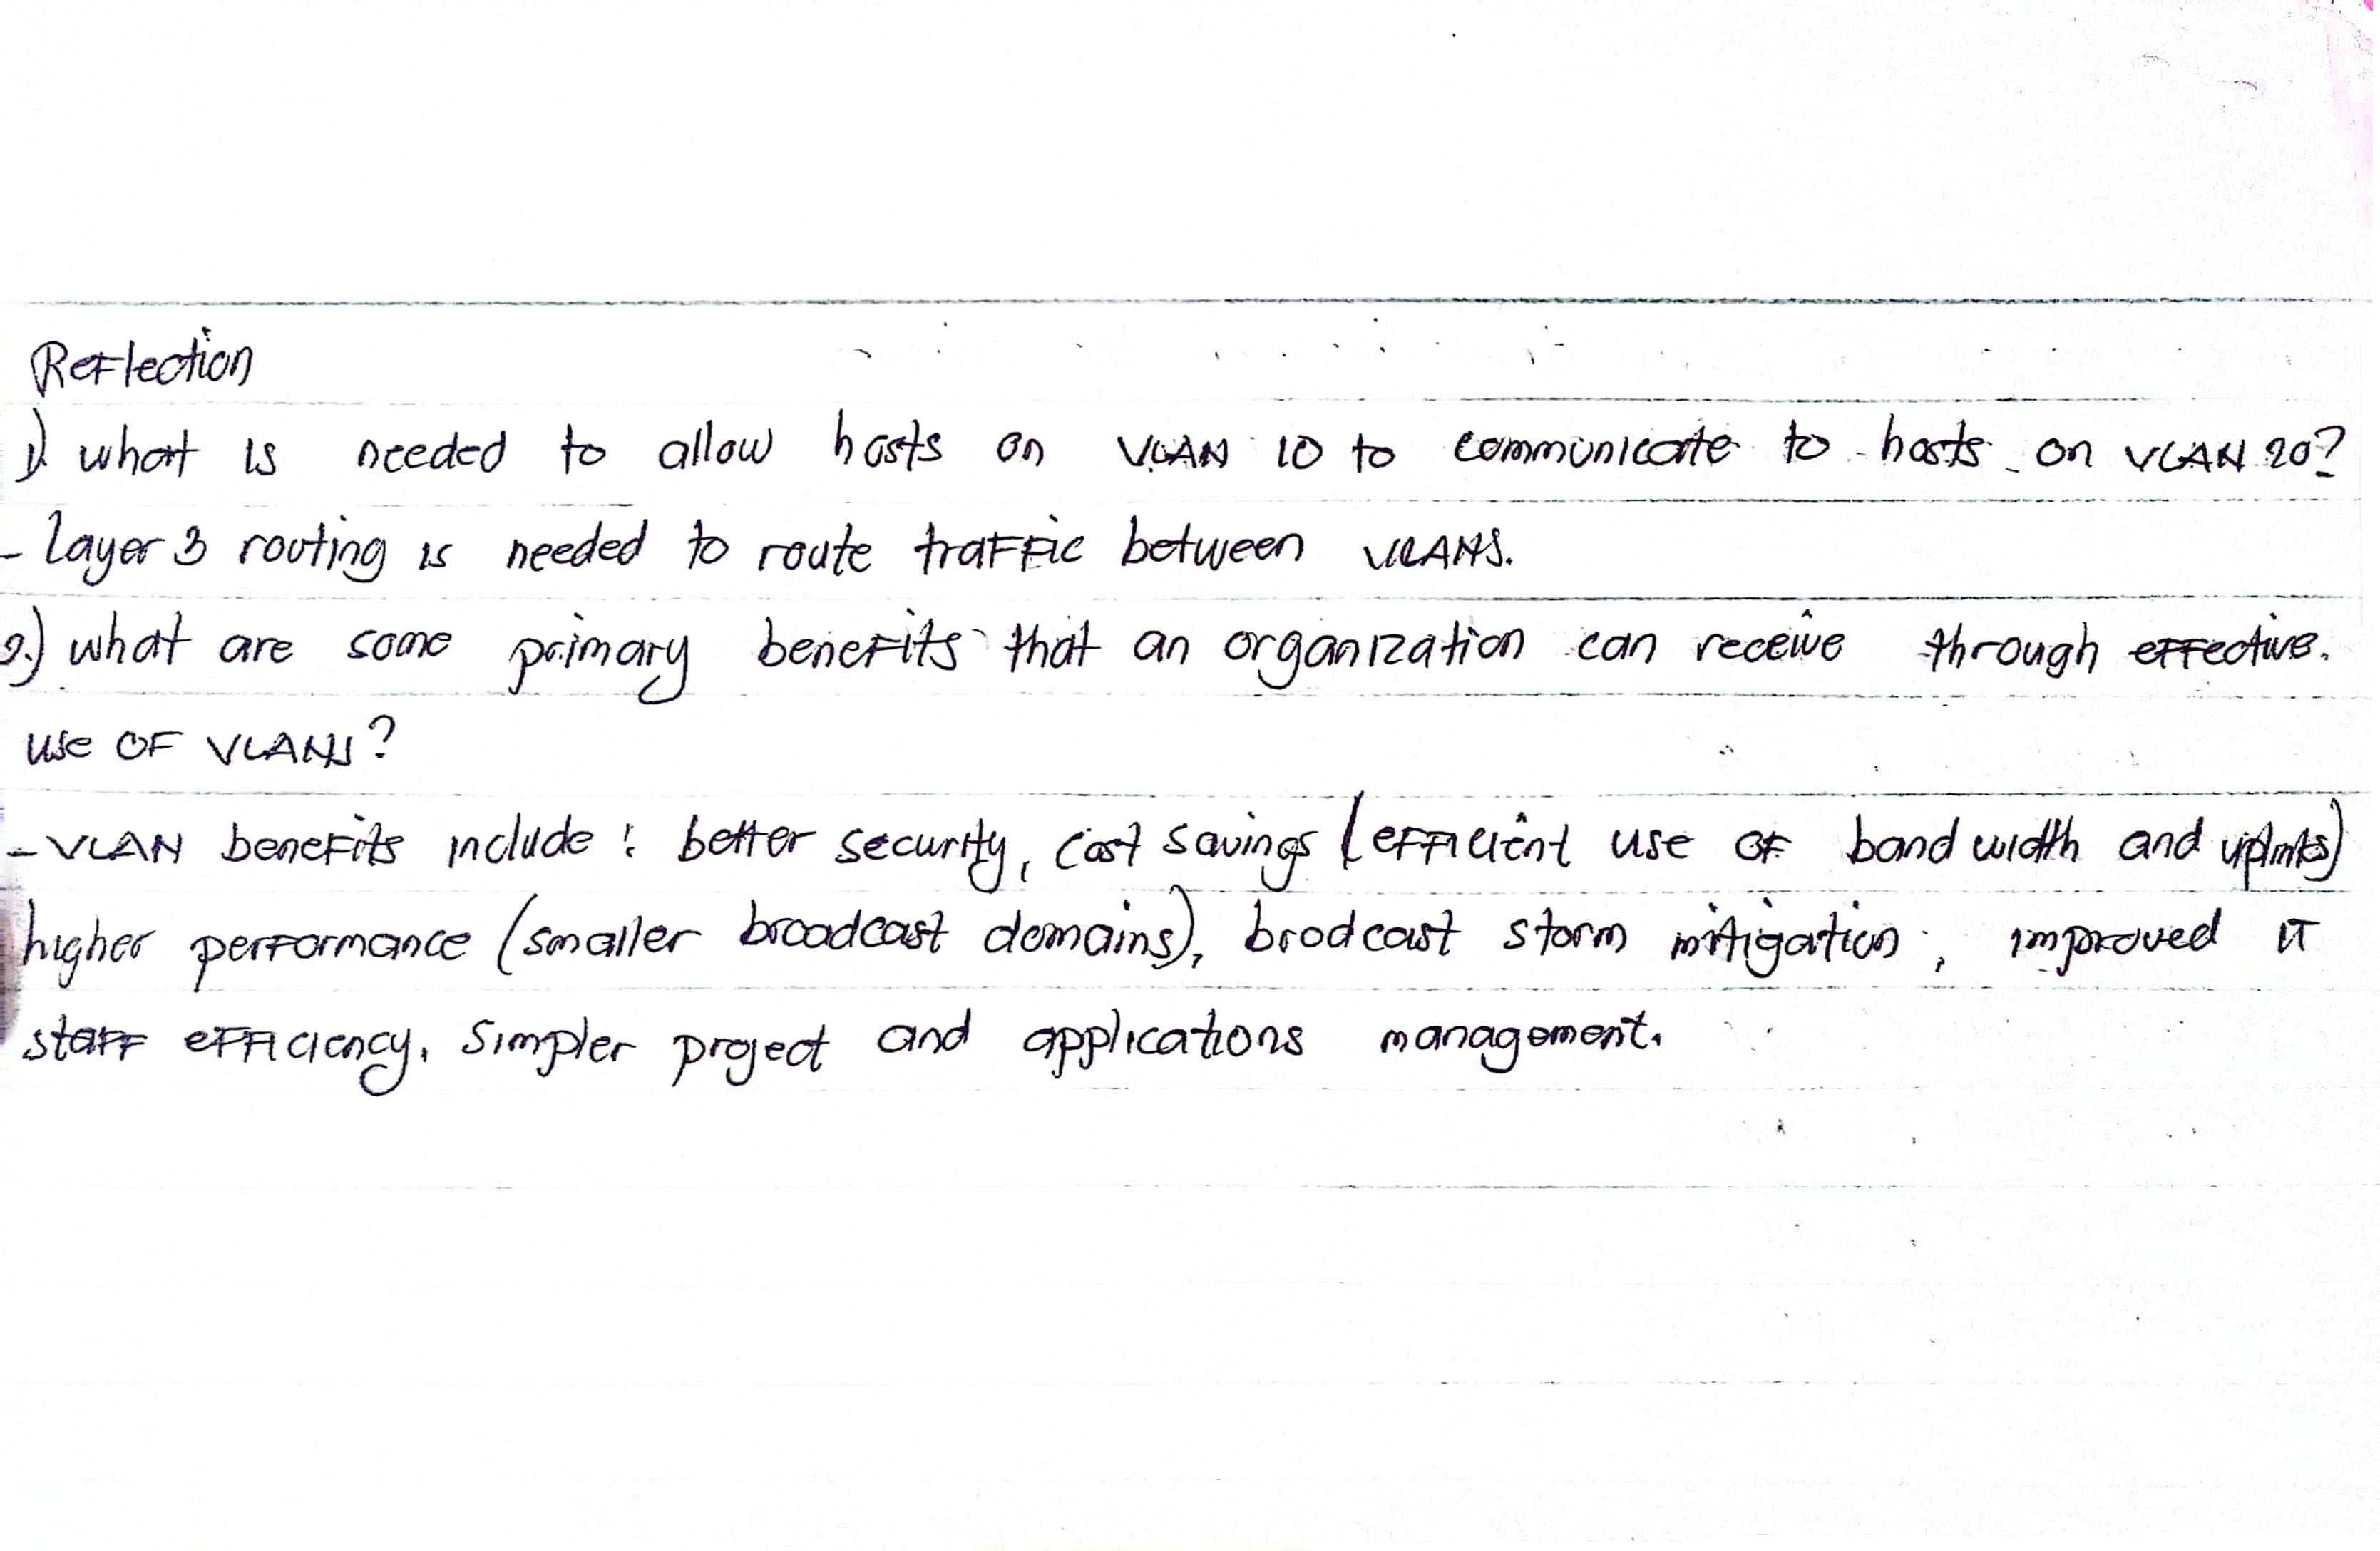 Reflection
1) what is needed to allow hosts on VLAN 10 to communicate to hosts on VLAN 20?
- layer 3 routing is needed to route traffic between VLANS.
2.) what are some primary benefits that an organization can receive through effective.
use OF VLANs?
- VLAN benefits include : better security, cost savings (efficient use of bandwidth and uplinks)
higher performance (smaller broadcast domains), brodcast storm mitigation, improved IT
staff efficiency. Simpler project and applications management.